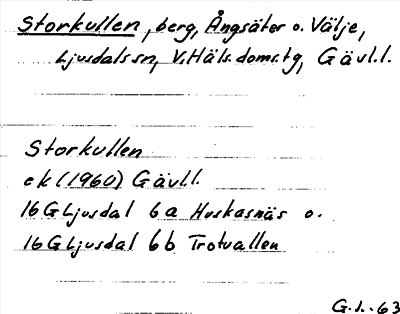 Storkullen, berg, Ångsäter o. Välje,
Ljusdals sn, V. Häls. doms. tg, Gävl.l.
Storkullen
ek (1960) Gävl.l.
16 G Ljusdal 6a Huskasnäs o.
16 G Ljusdal 6b Trotvallen
G.I. -63